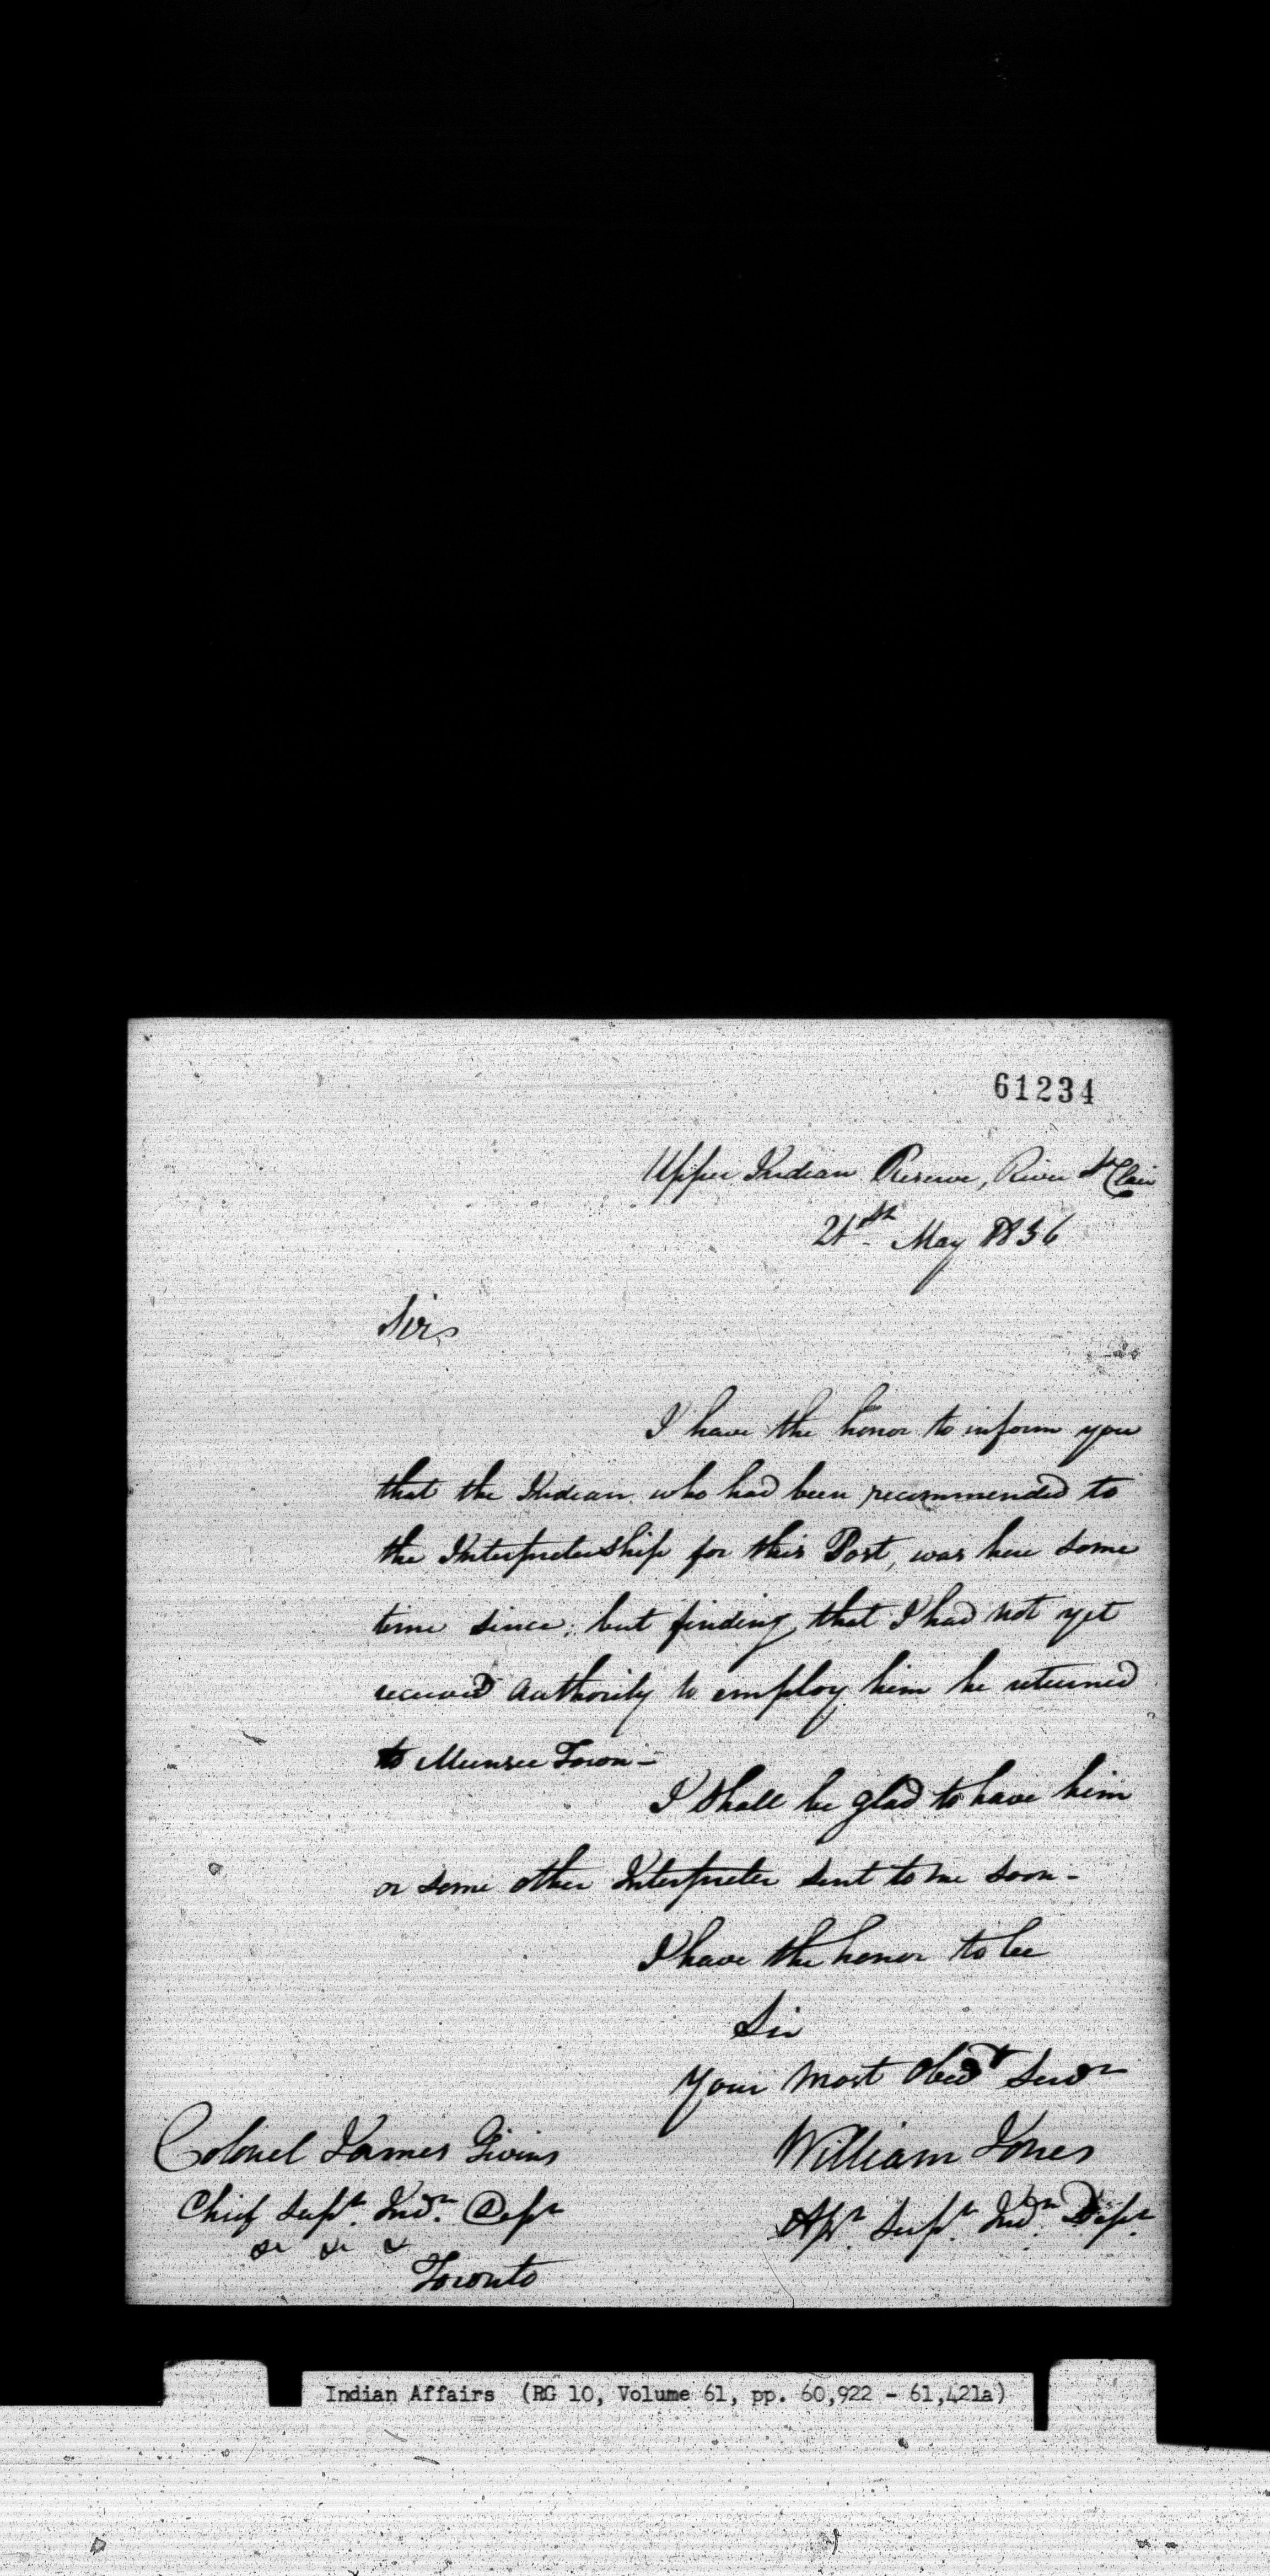 61234
Upper Indian Reserve, River St Clair
21st May 1836
Sir,
I have the honor to inform you
that the Indian who had been recommended to
the Interpretership for this Post, was here some
time since, but finding that I had not yet
received authority to employ him he returned
to Munsee Town -
I shall be glad to have him
or some other Interpreter sent to me soon -
I have the honor to be
Sir
Your most Obedt Servt
William Jones
Asst. Supt. Indn. Dept.
Colonel James Givins
Chief Supt. Indn. Dept
&c &c &c
Toronto
Indian Affairs (RG 10, Volume 61, pp. 60,922 - 61,421a)